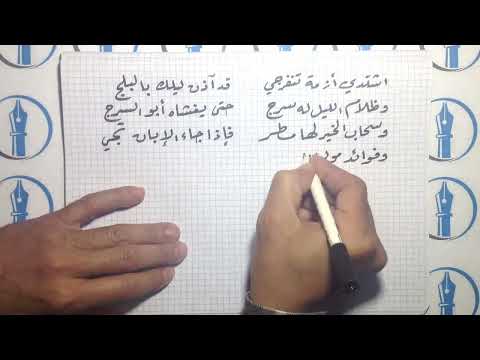 اشتدي أزمة تنفرجي قد آذن ليلك بالبلج
وظلام الليل له سرج حتى يغشاه أبو السرج
وسحاب الخير لها مطر فإذا جاء الإبان تجي
وفوائد مولانا